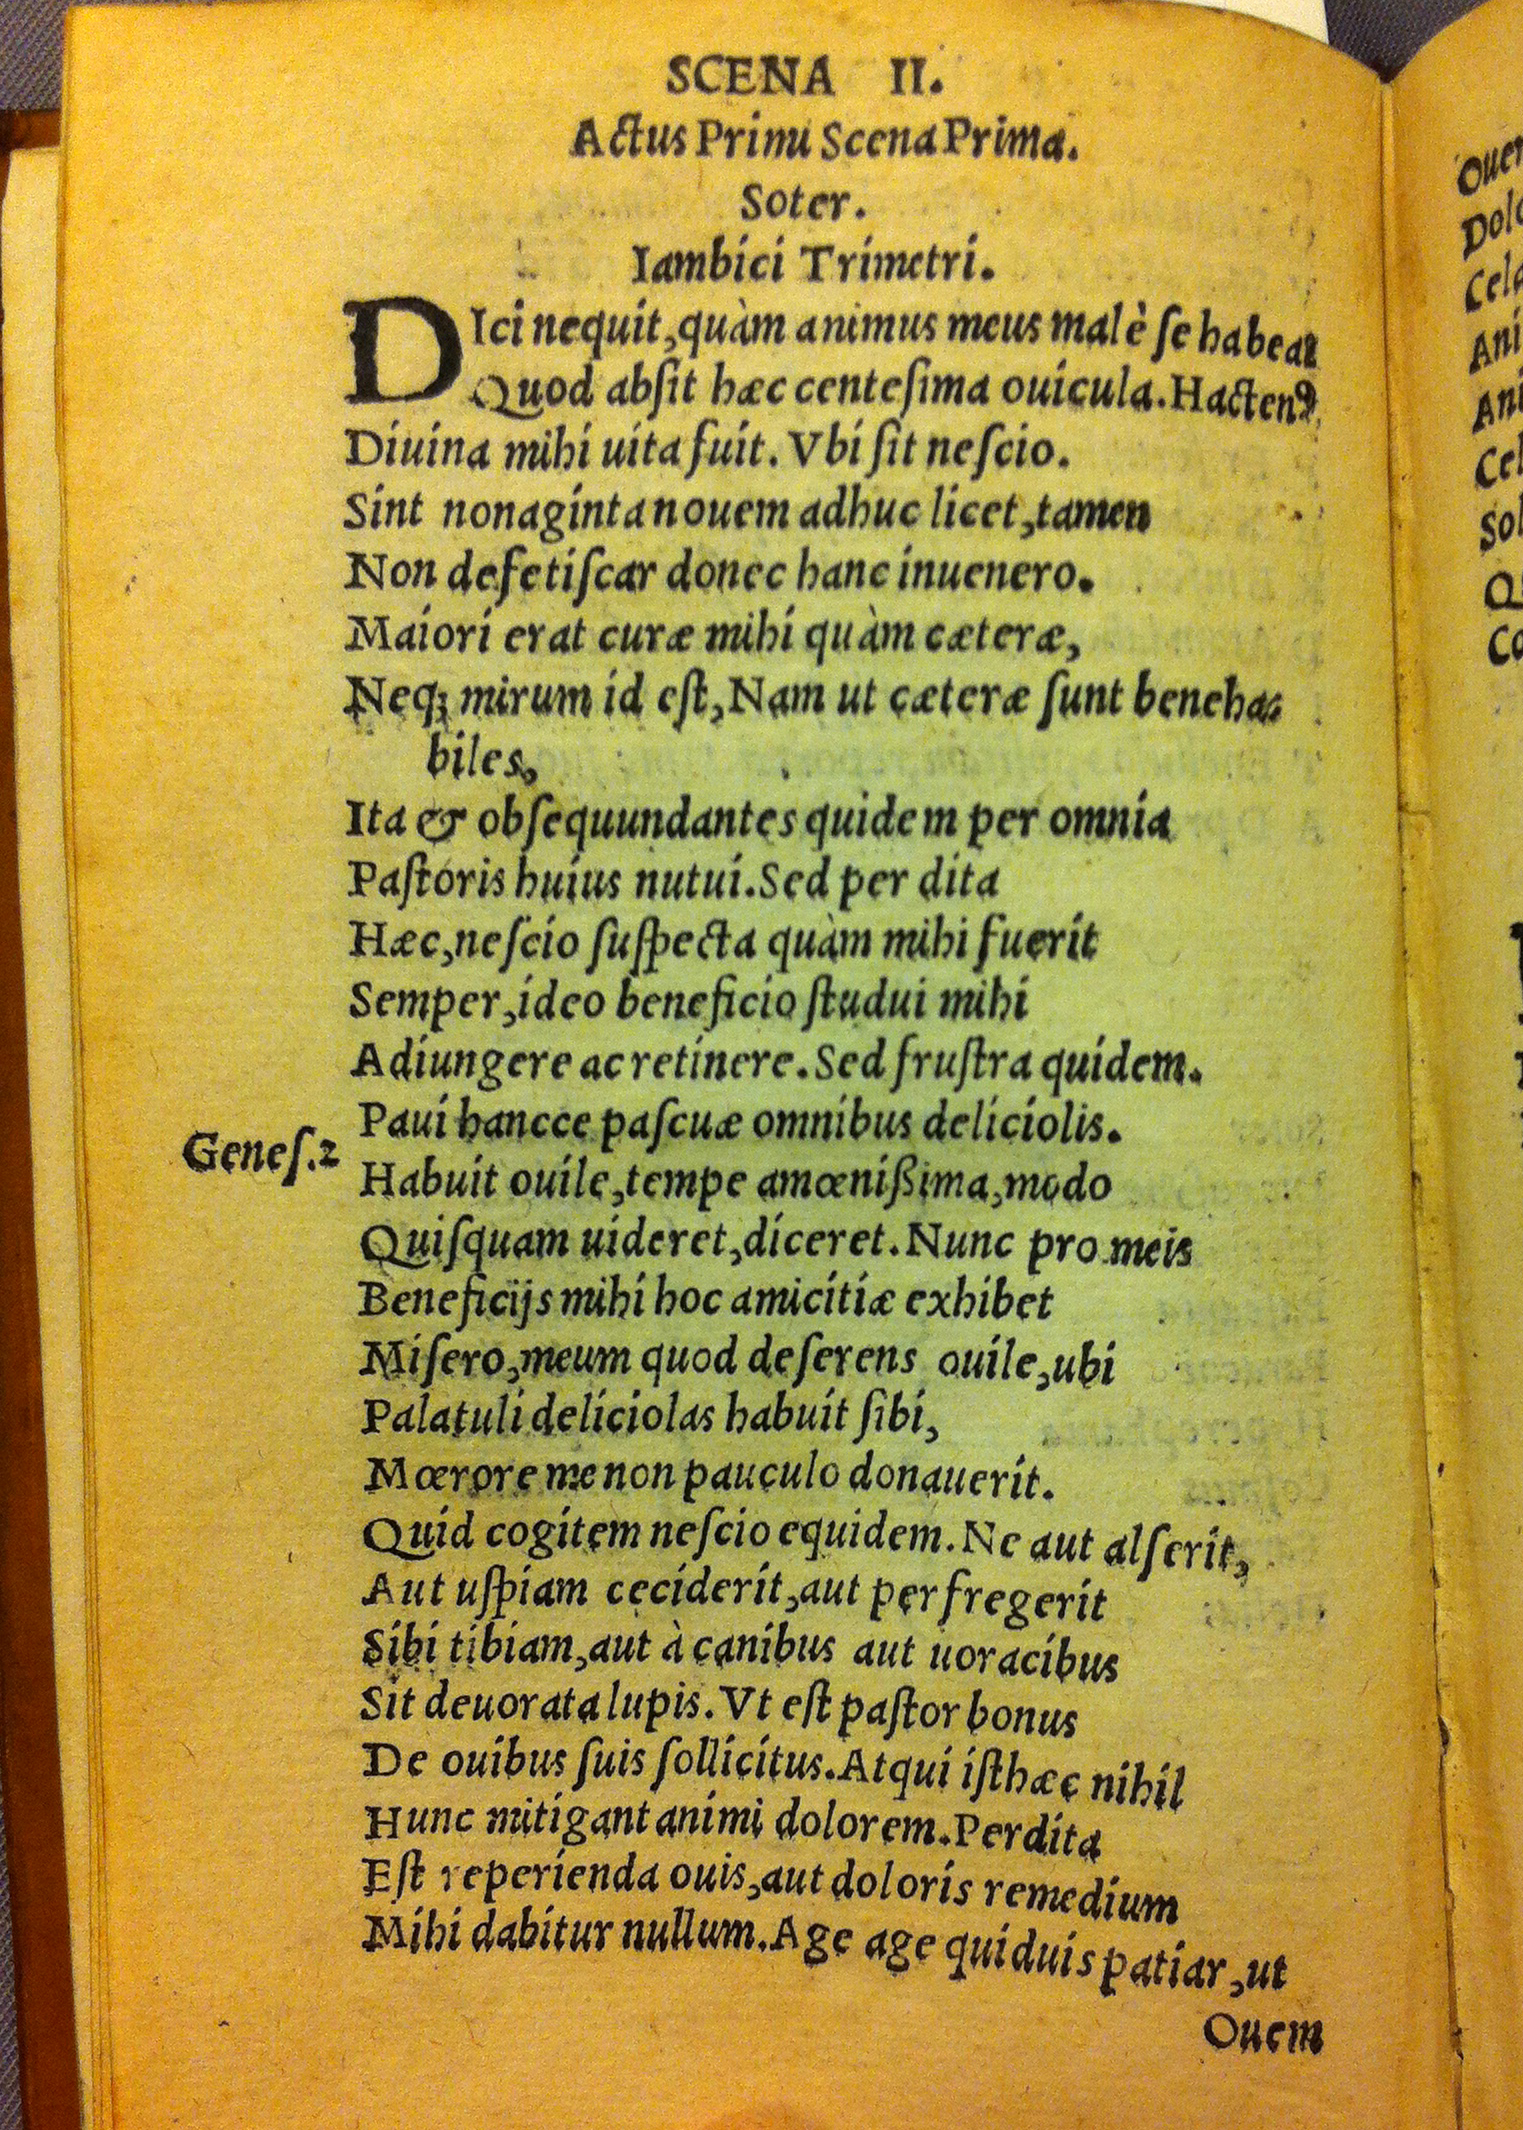 SCENA II.
Actus Primi Scena Prima.
Soter.
Iambici Trimetri.
DIci nequit, quàm animus meus malè ſe habeat
Quod abſit hæc centeſima ouicula. Hactenꝰ
Diuina mihi uita fuit. Vbi ſit neſcio.
Sint nonaginta nouem adhuc licet, tamen
Non defetiſcar donec hanc inuenero.
Maiori erat curæ mihi quàm cæteræ,
Neqꝫ mirum id eſt, Nam ut cæteræ ſunt beneha-
biles,
Ita & obſequundantes quidem per omnia
Paſtoris huius nutui. Sed perdita
Hæc, neſcio ſuſpecta quàm mihi fuerit
Semper, ideo beneficio ſtudui mihi
Adiungere ac retinere. Sed fruſtra quidem.
Paui hancce paſcuæ omnibus deliciolis.
Geneſ. 2
Habuit ouile, tempe amœnißima, modo
Quiſquam uideret, diceret. Nunc pro meis
Beneficijs mihi hoc amicitiæ exhibet
Miſero, meum quod deſerens ouile, ubi
Palatuli deliciolas habuit ſibi,
Mœrore me non pauculo donauerit.
Quid cogitem neſcio equidem. Ne aut alſerit,
Aut uſpiam ceciderit, aut perfregerit
Sibi tibiam, aut à canibus aut uoracibus
Sit deuorata lupis. Vt eſt paſtor bonus
De ouibus ſuis ſollicitus. Atqui iſthæc nihil
Hunc mitigant animi dolorem. Perdita
Eſt reperienda ouis, aut doloris remedium
Mihi dabitur nullum. Age age quiduis patiar, ut
Ouem